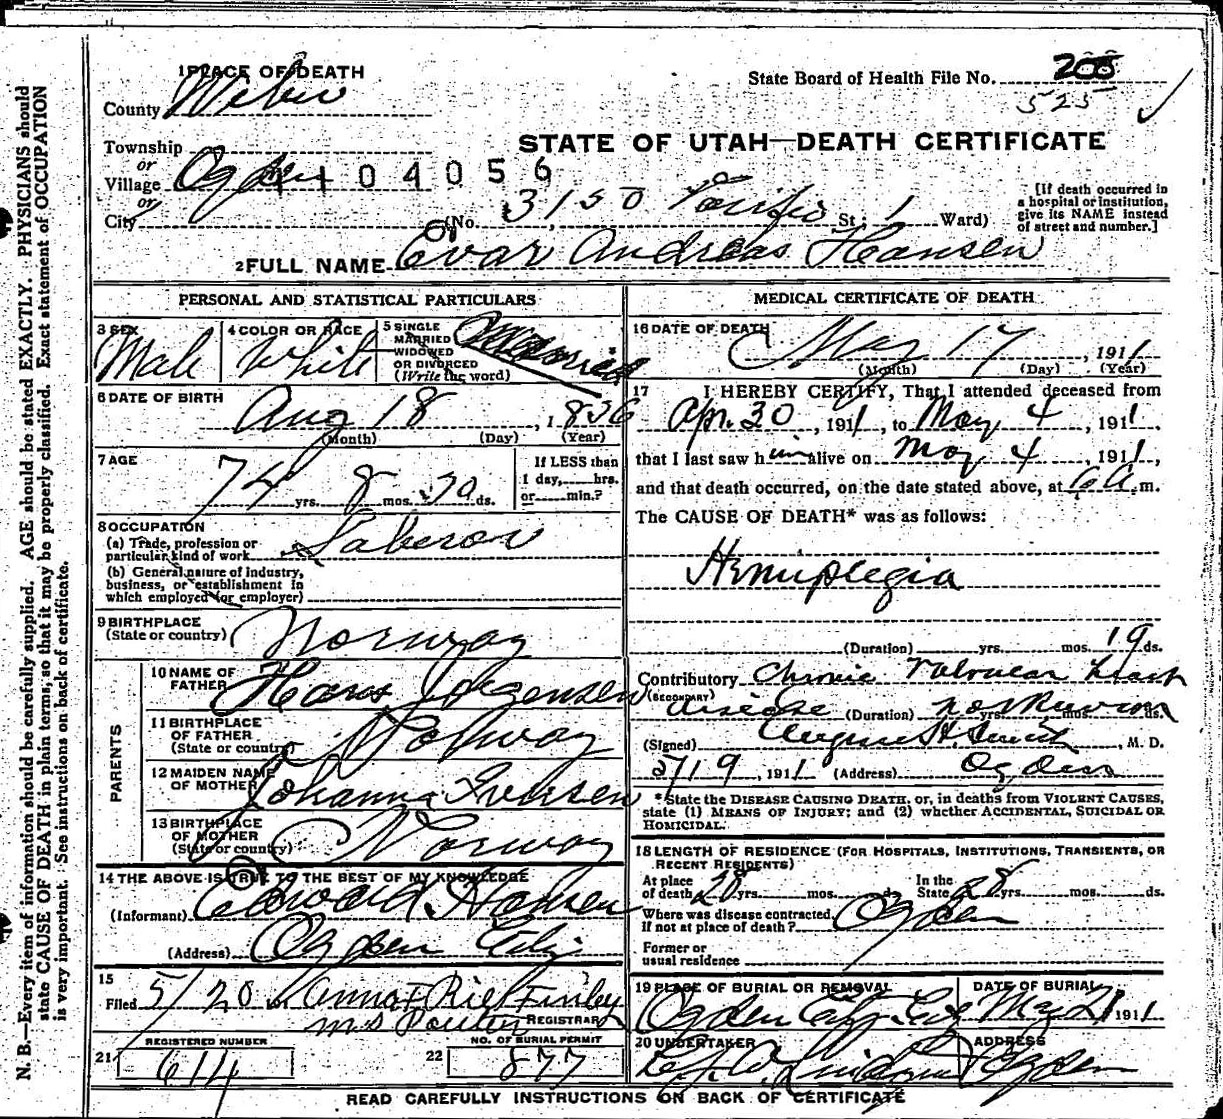 1 PLACE OF DEATH
County Weber
State Board of Health File No. 200
525
STATE OF UTAH—DEATH CERTIFICATE
Township
or
Village Ogden
1104056
or
City (No. 3150 Pacific St.; 1 Ward)
[If death occurred in
a hospital or institution,
give its NAME instead
of street and number.]
2 FULL NAME Evar Andreas Hansen
PERSONAL AND STATISTICAL PARTICULARS
3 SEX Male
4 COLOR OR RACE White
5 SINGLE
MARRIED
WIDOWED
OR DIVORCED
(Write the word)
6 DATE OF BIRTH
Aug 18, 1836
(Month) (Day) (Year)
7 AGE
74 yrs. 8 mos. 30 ds.
If LESS than
1 day, hrs.
or min.?
8 OCCUPATION
(a) Trade, profession or
particular kind of work Laberor
(b) General nature of industry,
business, or establishment in
which employed (or employer)
9 BIRTHPLACE
(State or country) Norway
PARENTS
10 NAME OF
FATHER Hans Jorgensen
11 BIRTHPLACE
OF FATHER
(State or country) Norway
12 MAIDEN NAME
OF MOTHER Johanna Iversen
13 BIRTHPLACE
OF MOTHER
(State or country) Norway
14 THE ABOVE IS TRUE TO THE BEST OF MY KNOWLEDGE
(Informant) Edward Hansen
(Address) Ogden City
15
Filed 5/20 Anna F Riel Finley
Ms REGISTRAR
21 REGISTERED NUMBER
614
22 NO. OF BURIAL PERMIT
877
MEDICAL CERTIFICATE OF DEATH
16 DATE OF DEATH
May 17, 1911
(Month) (Day) (Year)
17 I HEREBY CERTIFY, That I attended deceased from
Apr. 30 1911, to May 4, 1911,
that I last saw him alive on May 4, 1911,
and that death occurred, on the date stated above, at 6 A.m.
The CAUSE OF DEATH* was as follows:
Hemiplegia
(Duration) yrs. mos. 19 ds.
Contributory Chronic Valvular heart
(SECONDARY) disease (Duration) not known yrs. mos. ds.
(Signed) Eugene H. Smith, M. D.
5/19, 1911 (Address) Ogden
*State the DISEASE CAUSING DEATH, or, in deaths from VIOLENT CAUSES,
state (1) MEANS OF INJURY; and (2) whether ACCIDENTAL, SUICIDAL OR
HOMICIDAL.
18 LENGTH OF RESIDENCE (FOR HOSPITALS, INSTITUTIONS, TRANSIENTS, OR
RECENT RESIDENTS)
At place
of death 28 yrs. mos. ds. In the
State 28 yrs. mos. ds.
Where was disease contracted,
if not at place of death? Ogden
Former or
usual residence
19 PLACE OF BURIAL OR REMOVAL
Ogden City
DATE OF BURIAL
May 21 1911
20 UNDERTAKER
ADDRESS
Ogden
READ CAREFULLY INSTRUCTIONS ON BACK OF CERTIFICATE
N. B.—Every item of information should be carefully supplied. AGE should be stated EXACTLY. PHYSICIANS should
state CAUSE OF DEATH in plain terms, so that it may be properly classified. Exact statement of OCCUPATION
is very important. See instructions on back of certificate.